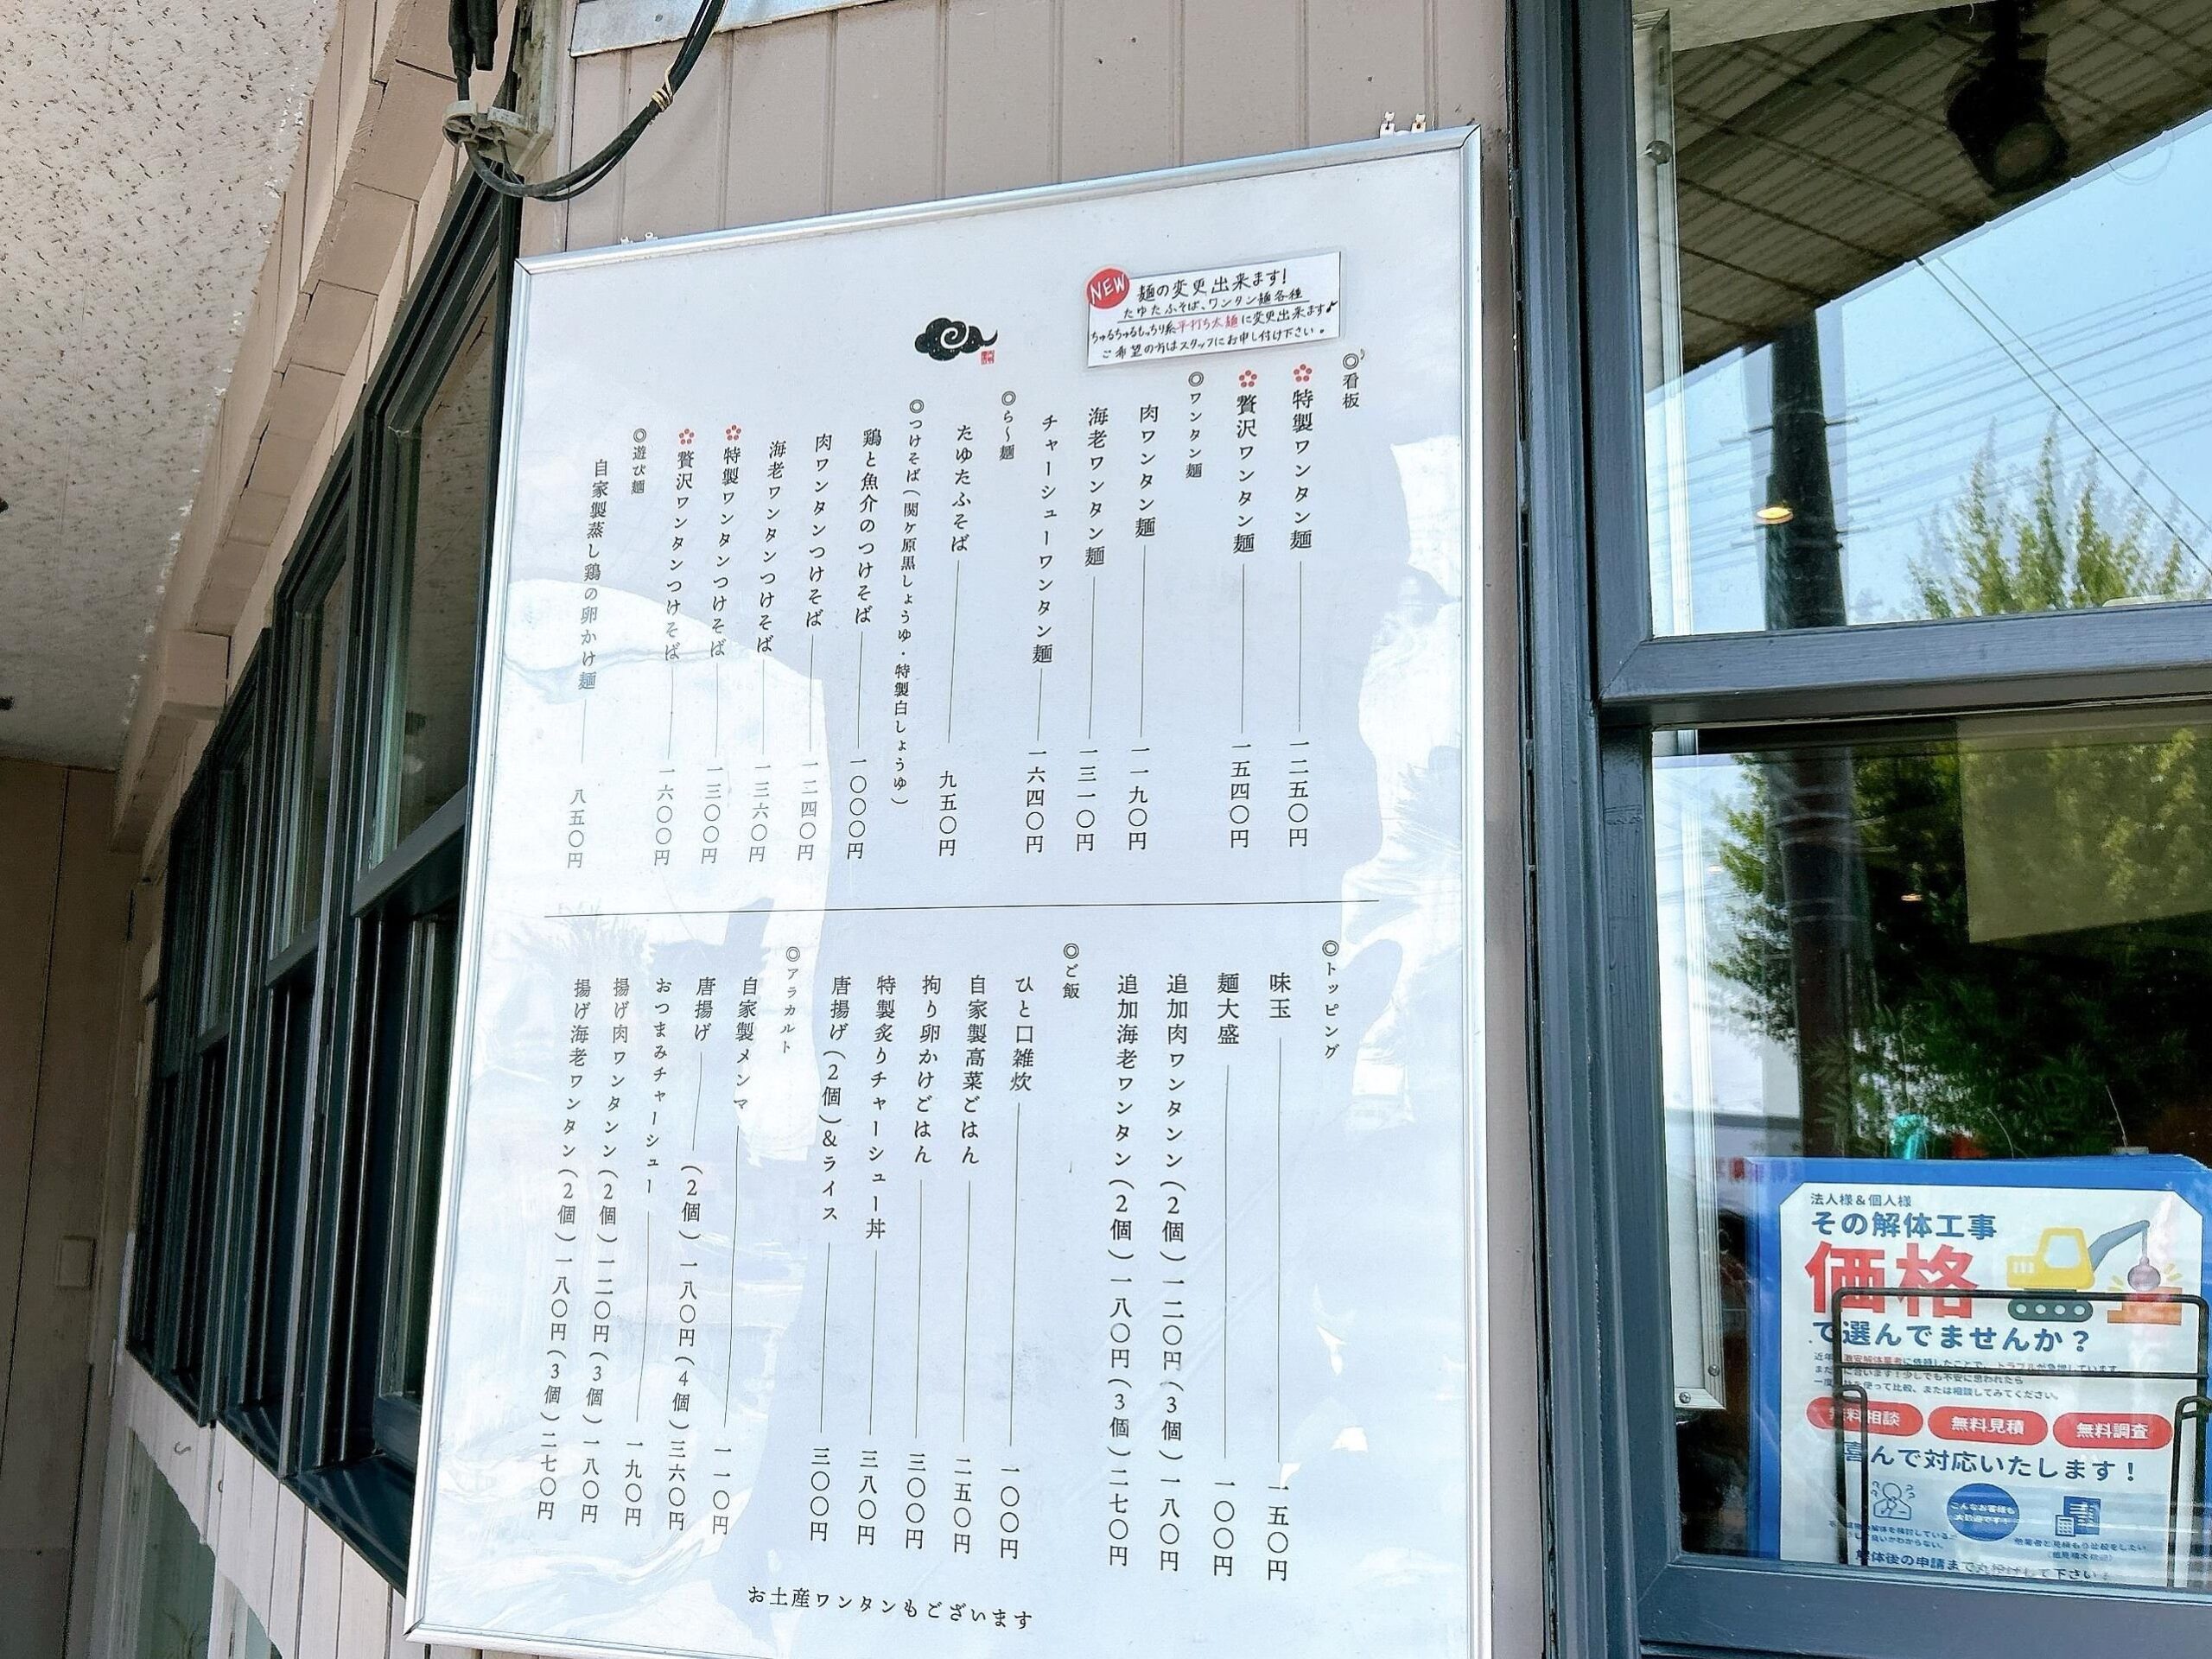 NEW
麺の変更出来ます!
たゆたふそば、ワンタン麺各種
ちゅるちゅるもっちり系平打ち太麺に変更出来ます♪
ご希望の方はスタッフにお申し付け下さい。
◎看板
特製ワンタン麺 一二五〇円
贅沢ワンタン麺 一五四〇円
◎ワンタン麺
肉ワンタン麺 一一九〇円
海老ワンタン麺 一三一〇円
チャーシューワンタン麺 一六四〇円
◎ら～麺
たゆたふそば 九五〇円
◎つけそば(関ケ原黒しょうゆ・特製白しょうゆ)
鶏と魚介のつけそば 一〇〇〇円
肉ワンタンつけそば 一二四〇円
海老ワンタンつけそば 一三六〇円
特製ワンタンつけそば 一三〇〇円
贅沢ワンタンつけそば 一六〇〇円
◎遊び麺
自家製蒸し鶏の卵かけ麺 八五〇円
◎トッピング
味玉 一五〇円
麺大盛 一〇〇円
追加肉ワンタンン(2個)一二〇円(3個)一八〇円
追加海老ワンタン(2個)一八〇円(3個)二七〇円
◎ご飯
ひと口雑炊 一〇〇円
自家製高菜ごはん 二五〇円
拘り卵かけごはん 三〇〇円
特製炙りチャーシュー丼 三八〇円
唐揚げ(2個)&ライス 三〇〇円
◎アラカルト
自家製メンマ 一一〇円
唐揚げ (2個)一八〇円(4個)三六〇円
おつまみチャーシュー 一九〇円
揚げ肉ワンタンン(2個)一二〇円(3個)一八〇円
揚げ海老ワンタン(2個)一八〇円(3個)二七〇円
お土産ワンタンもございます
法人様&個人様
その解体工事
価格
で選んでませんか?
無料相談
無料見積
無料調査
喜んで対応いたします!
こんなお客様も
大歓迎です!